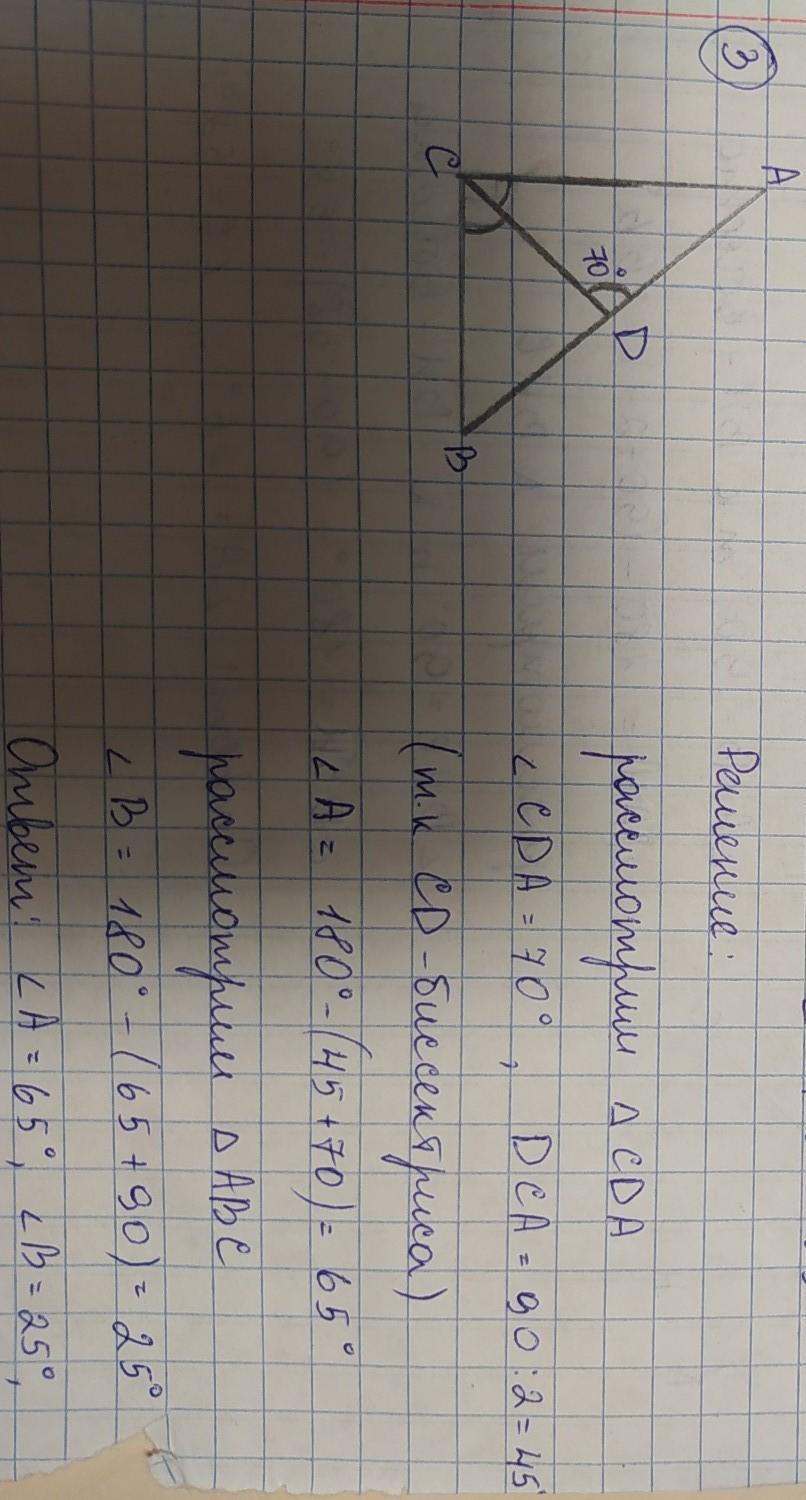 3
A
70°
D
C
B
Решение:
рассмотрим △CDA
∠CDA = 70°, DCA = 90 : 2 = 45
(т.к CD - биссектриса)
∠A = 180° - (45 + 70) = 65°
рассмотрим △ABC
∠B = 180° - (65 + 90) = 25°
Ответ: ∠A = 65°, ∠B = 25°,